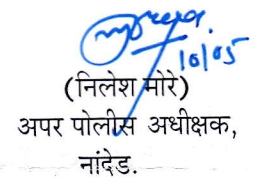 10/05
(निलेश मोरे)
अपर पोलीस अधीक्षक,
नांदेड.